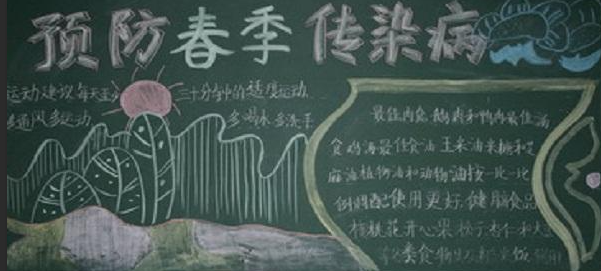 预防春季传染病
运动建议每天至少三十分钟的适度运动
多通风多运动 多喝水多洗手
最佳肉食 鹅肉和鸭肉最佳汤
食鸡汤最佳食油 玉米油米糠和芝
麻油植物油和动物油按一比一比
例调配使用更好 健脑食品
核桃花开心果 松子杏仁和大
类食物 饭